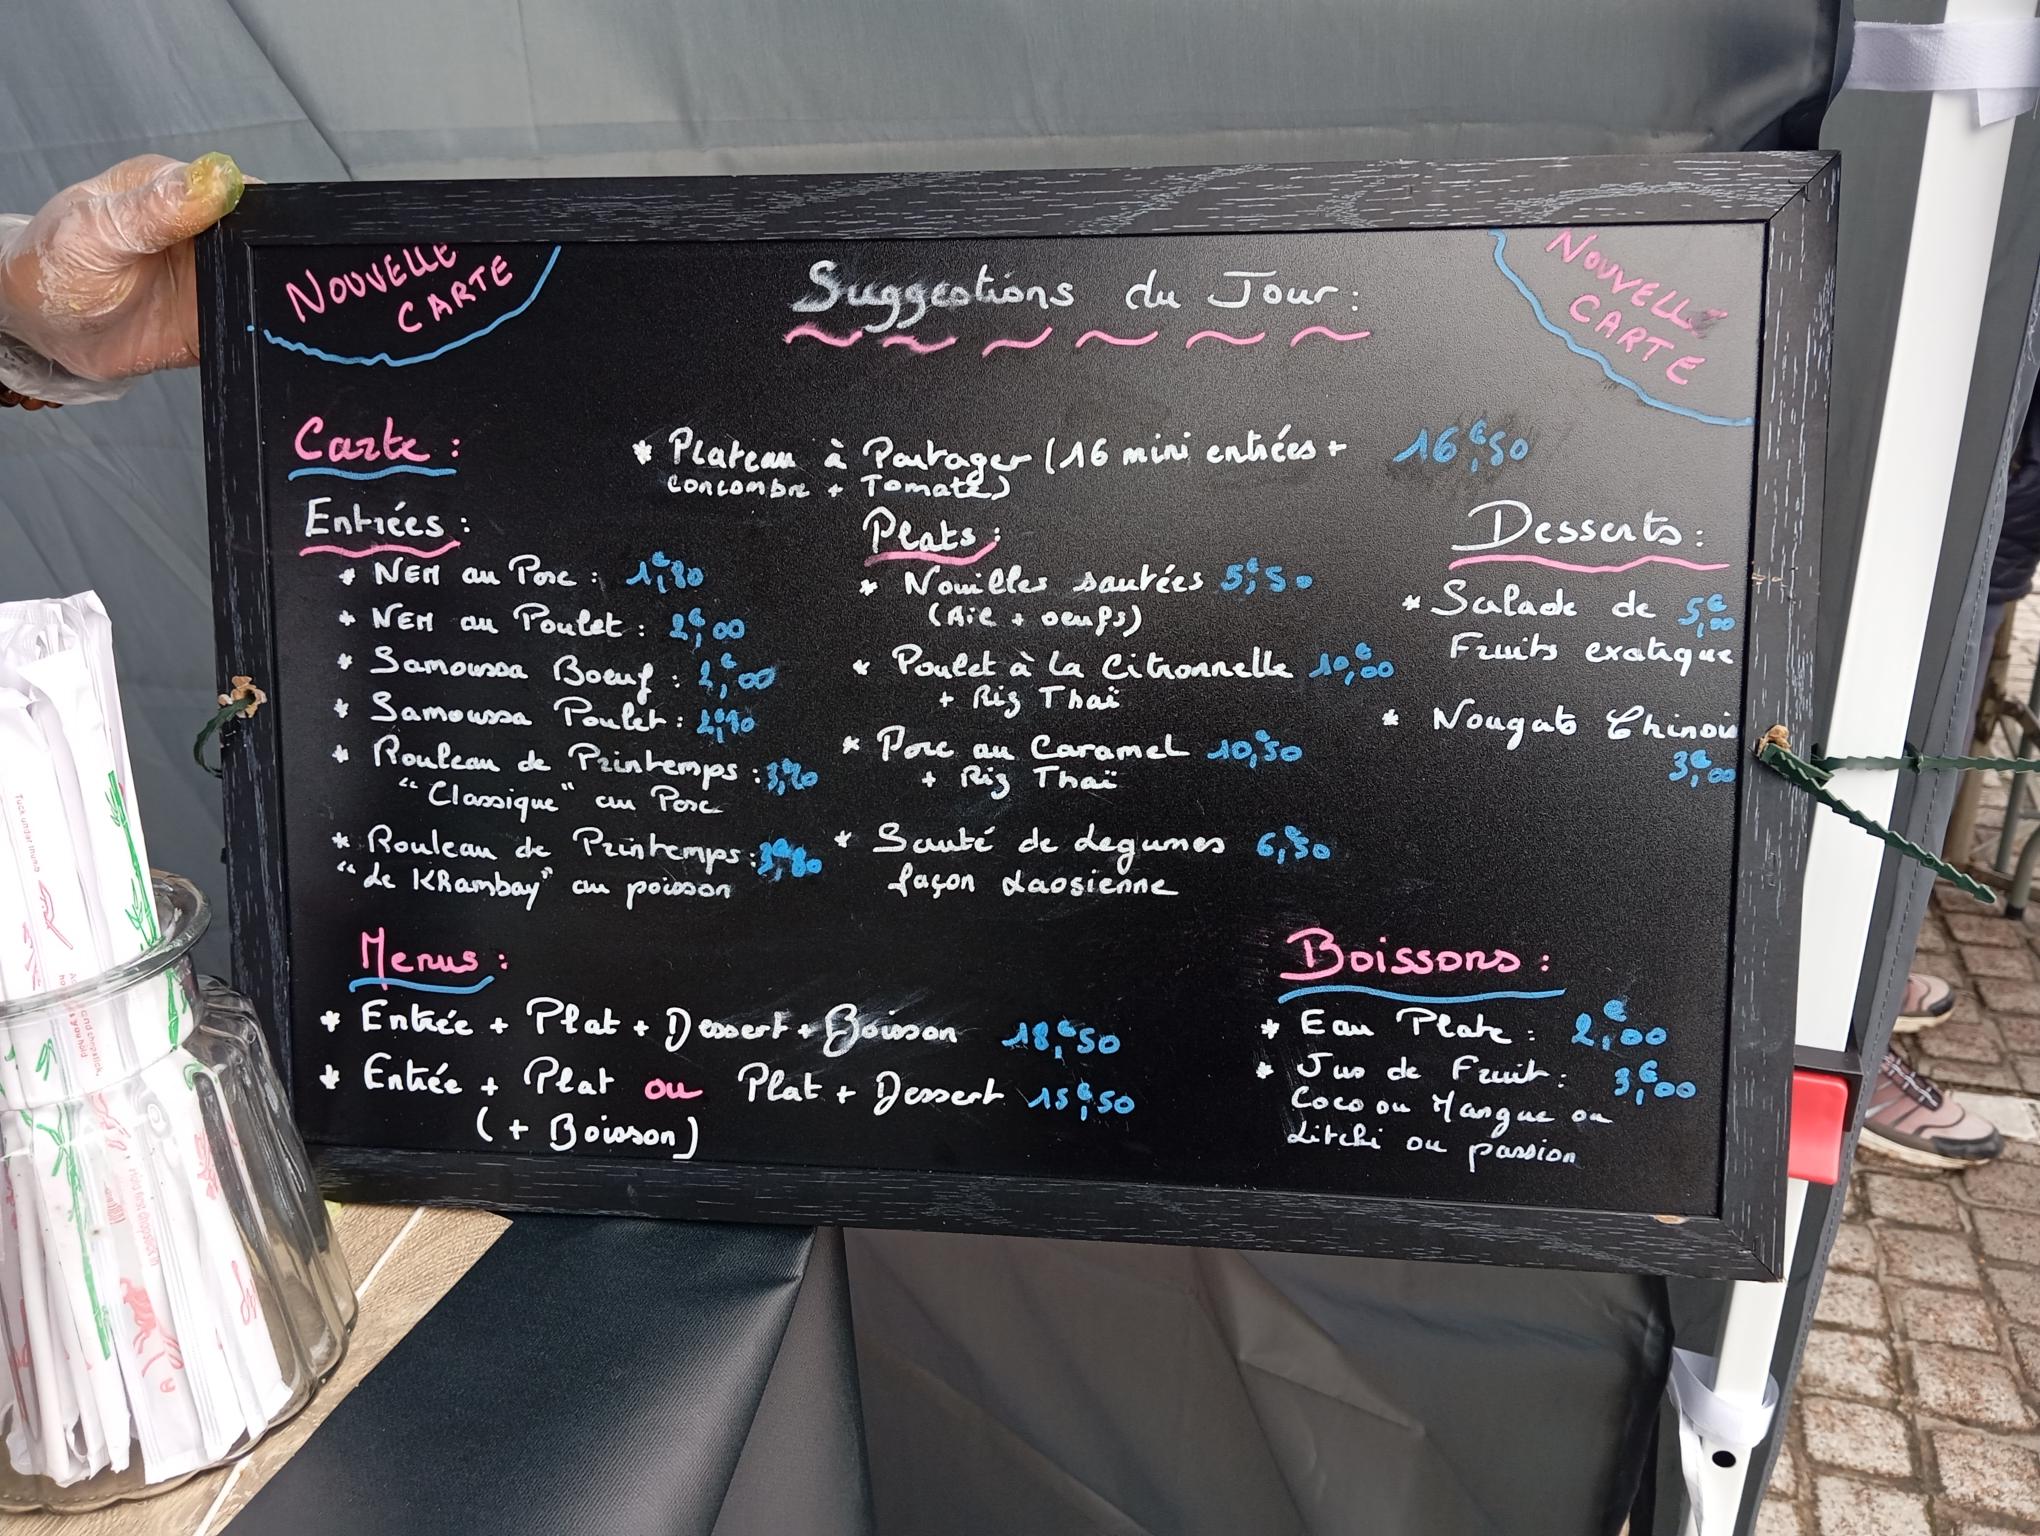 NOUVELLE
CARTE
Suggestions du Jour :
NOUVELLE
CARTE
Carte :
* Plateau à Partager (16 mini entrées + 16€,50
concombre + Tomate)
Entrées :
* NEM au Porc : 1€,80
* NEM au Poulet : 2€,00
* Samoussa Boeuf : 2€,00
* Samoussa Poulet :
* Rouleau de Printemps :
"Classique" au Porc
* Rouleau de Printemps : 3€80
"Le KHambay" au poisson
Plats :
* Nouilles sautées 5€,50
(Ail + oeufs)
* Poulet à la Citronnelle 10€,00
+ Riz Thaï
* Porc au Caramel 10€,50
+ Riz Thaï
* Sauté de Legumes 6€,50
façon Laosienne
Desserts :
* Salade de 5€,00
Fruits exotique
* Nougats Chinois
3€,00
Menus :
* Entrée + Plat + Dessert + Boisson 18€,50
* Entrée + Plat ou Plat + Dessert 15€,50
(+ Boisson)
Boissons :
* Eau Plate : 2€,00
* Jus de Fruit : 3€,00
Coco ou Mangue ou
Litchi ou passion